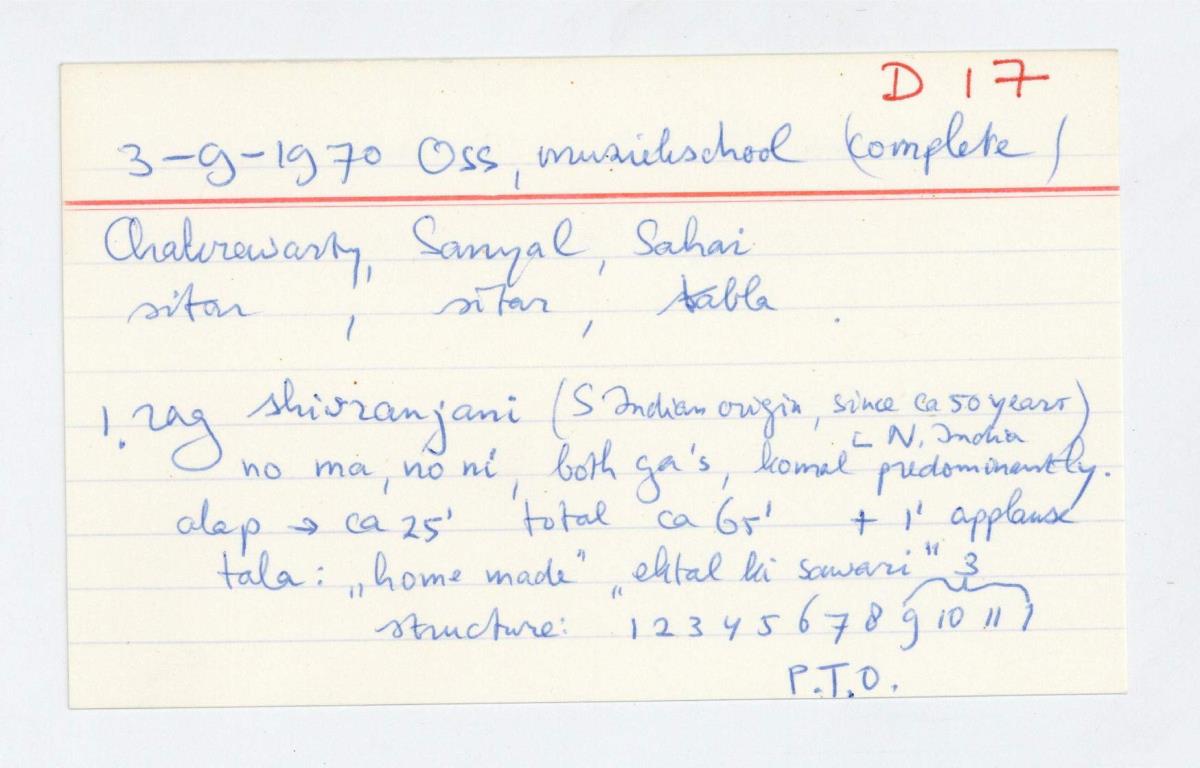 D 17
3-9-1970 Oss, muziekschool (complete)
Chakrewarty, Sanyal, Sahai
sitar , sitar , tabla .
1. rag shivranjani (S Indian origin, since ca 50 years)
N. India
no ma, no ni, both ga's, komal predominantly.
alap → ca 25' total ca 65' + 1' applause
tala: „home made" „ektal ki sawari" 3
structure: 1 2 3 4 5 6 7 8 9 10 11
P.T.O.